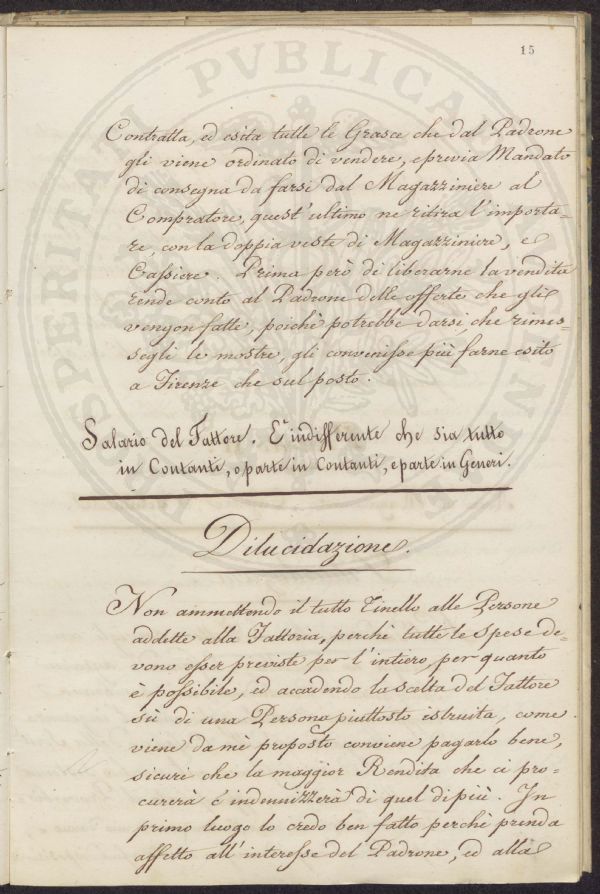 15
Contratta, ed esita tutte le Grasce che dal Padrone
gli viene ordinato di vendere, e previa Mandato
di consegna da farsi dal Magazziniere al
Compratore, quest'ultimo ne ritira l'importa-
re, con la doppia veste di Magazziniere, e
Cassiere. Prima però di liberarne la vendita
rende conto al Padrone delle offerte che gli
vengon fatte, poichè potrebbe darsi che rimes-
segli le mostre, gli convenisse più farne esito
a Firenze che sul posto.
Salario del Fattore. E' indifferente che sia tutto
in Contanti, o parte in Contanti, e parte in Generi.
Dilucidazione.
Non ammettendo il tutto Tinello alle Persone
addette alla Fattoria, perchè tutte le Spese de-
vono esser previste per l'intiero, per quanto
è possibile, ed accadendo la scelta del Fattore
su di una Persona piuttosto istruita, come
viene da mè proposto conviene pagarlo bene,
sicuri che la maggior Rendita che ci pro-
curerà c'indennizzerà di quel di più. In
primo luogo lo credo ben fatto perchè prenda
affetto all'interesse del Padrone, ed alla
PROSPERITATI PVBLICAE